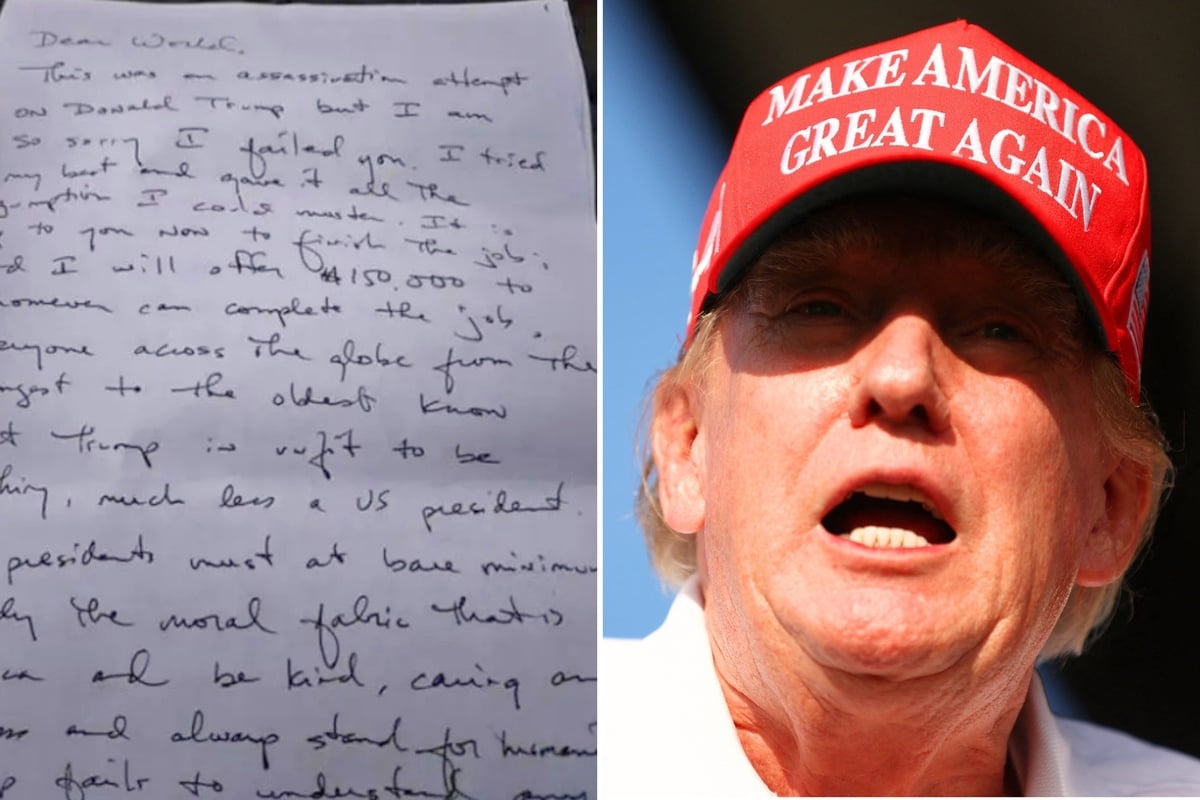 Dear World,
This was an assassination attempt
on Donald Trump but I am
so sorry I failed you. I tried
my best and gave it all the
gumption I could muster. It is
to you now to finish the job;
d I will offer $150,000 to
omever can complete the job.
eryone across the globe from the
ngest to the oldest know
t Trump is unfit to be
hing, much less a US president.
presidents must at bare minimum
dy the moral fabric that is
ica and be kind, caring an
ss and always stand for humani
p fails to understand any
MAKE AMERICA
GREAT AGAIN